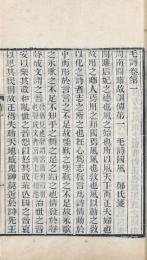 毛詩卷第一
周南關雎詁訓傳第一 毛詩國風 鄭氏箋
關雎后妃之德也風之始也所以風天下而正夫婦也
故用之鄉人焉用之邦國焉風風也教也風以動之教
以化之詩者志之所之也在心爲志發言爲詩情動於
中而形於言言之不足故嗟歎之嗟歎之不足故永歌
之永歌之不足不知手之舞之足之蹈之也情發於聲
聲成文謂之音 治世之音
安以樂其政和亂世之音怨以怒其政乖亡國之音哀
以思其民困故正得失動天地感鬼神莫近於詩先王